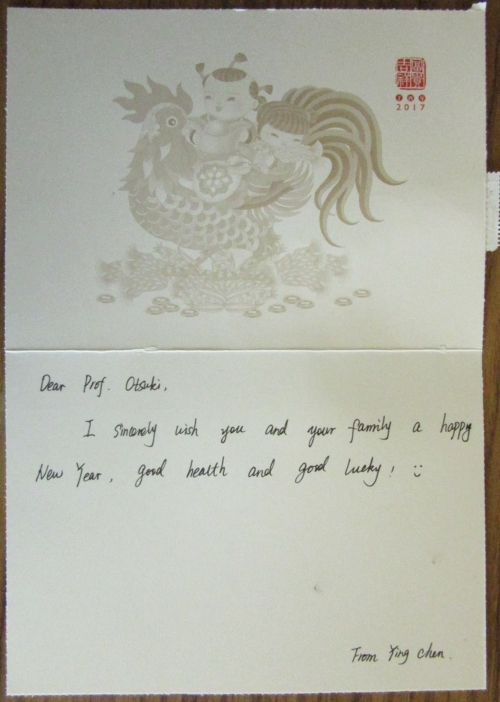 吉祥
2017
Dear Prof. Otsuki,
I sincerely wish you and your family a happy
New Year, good health and good lucky! :)
From Ying chen.